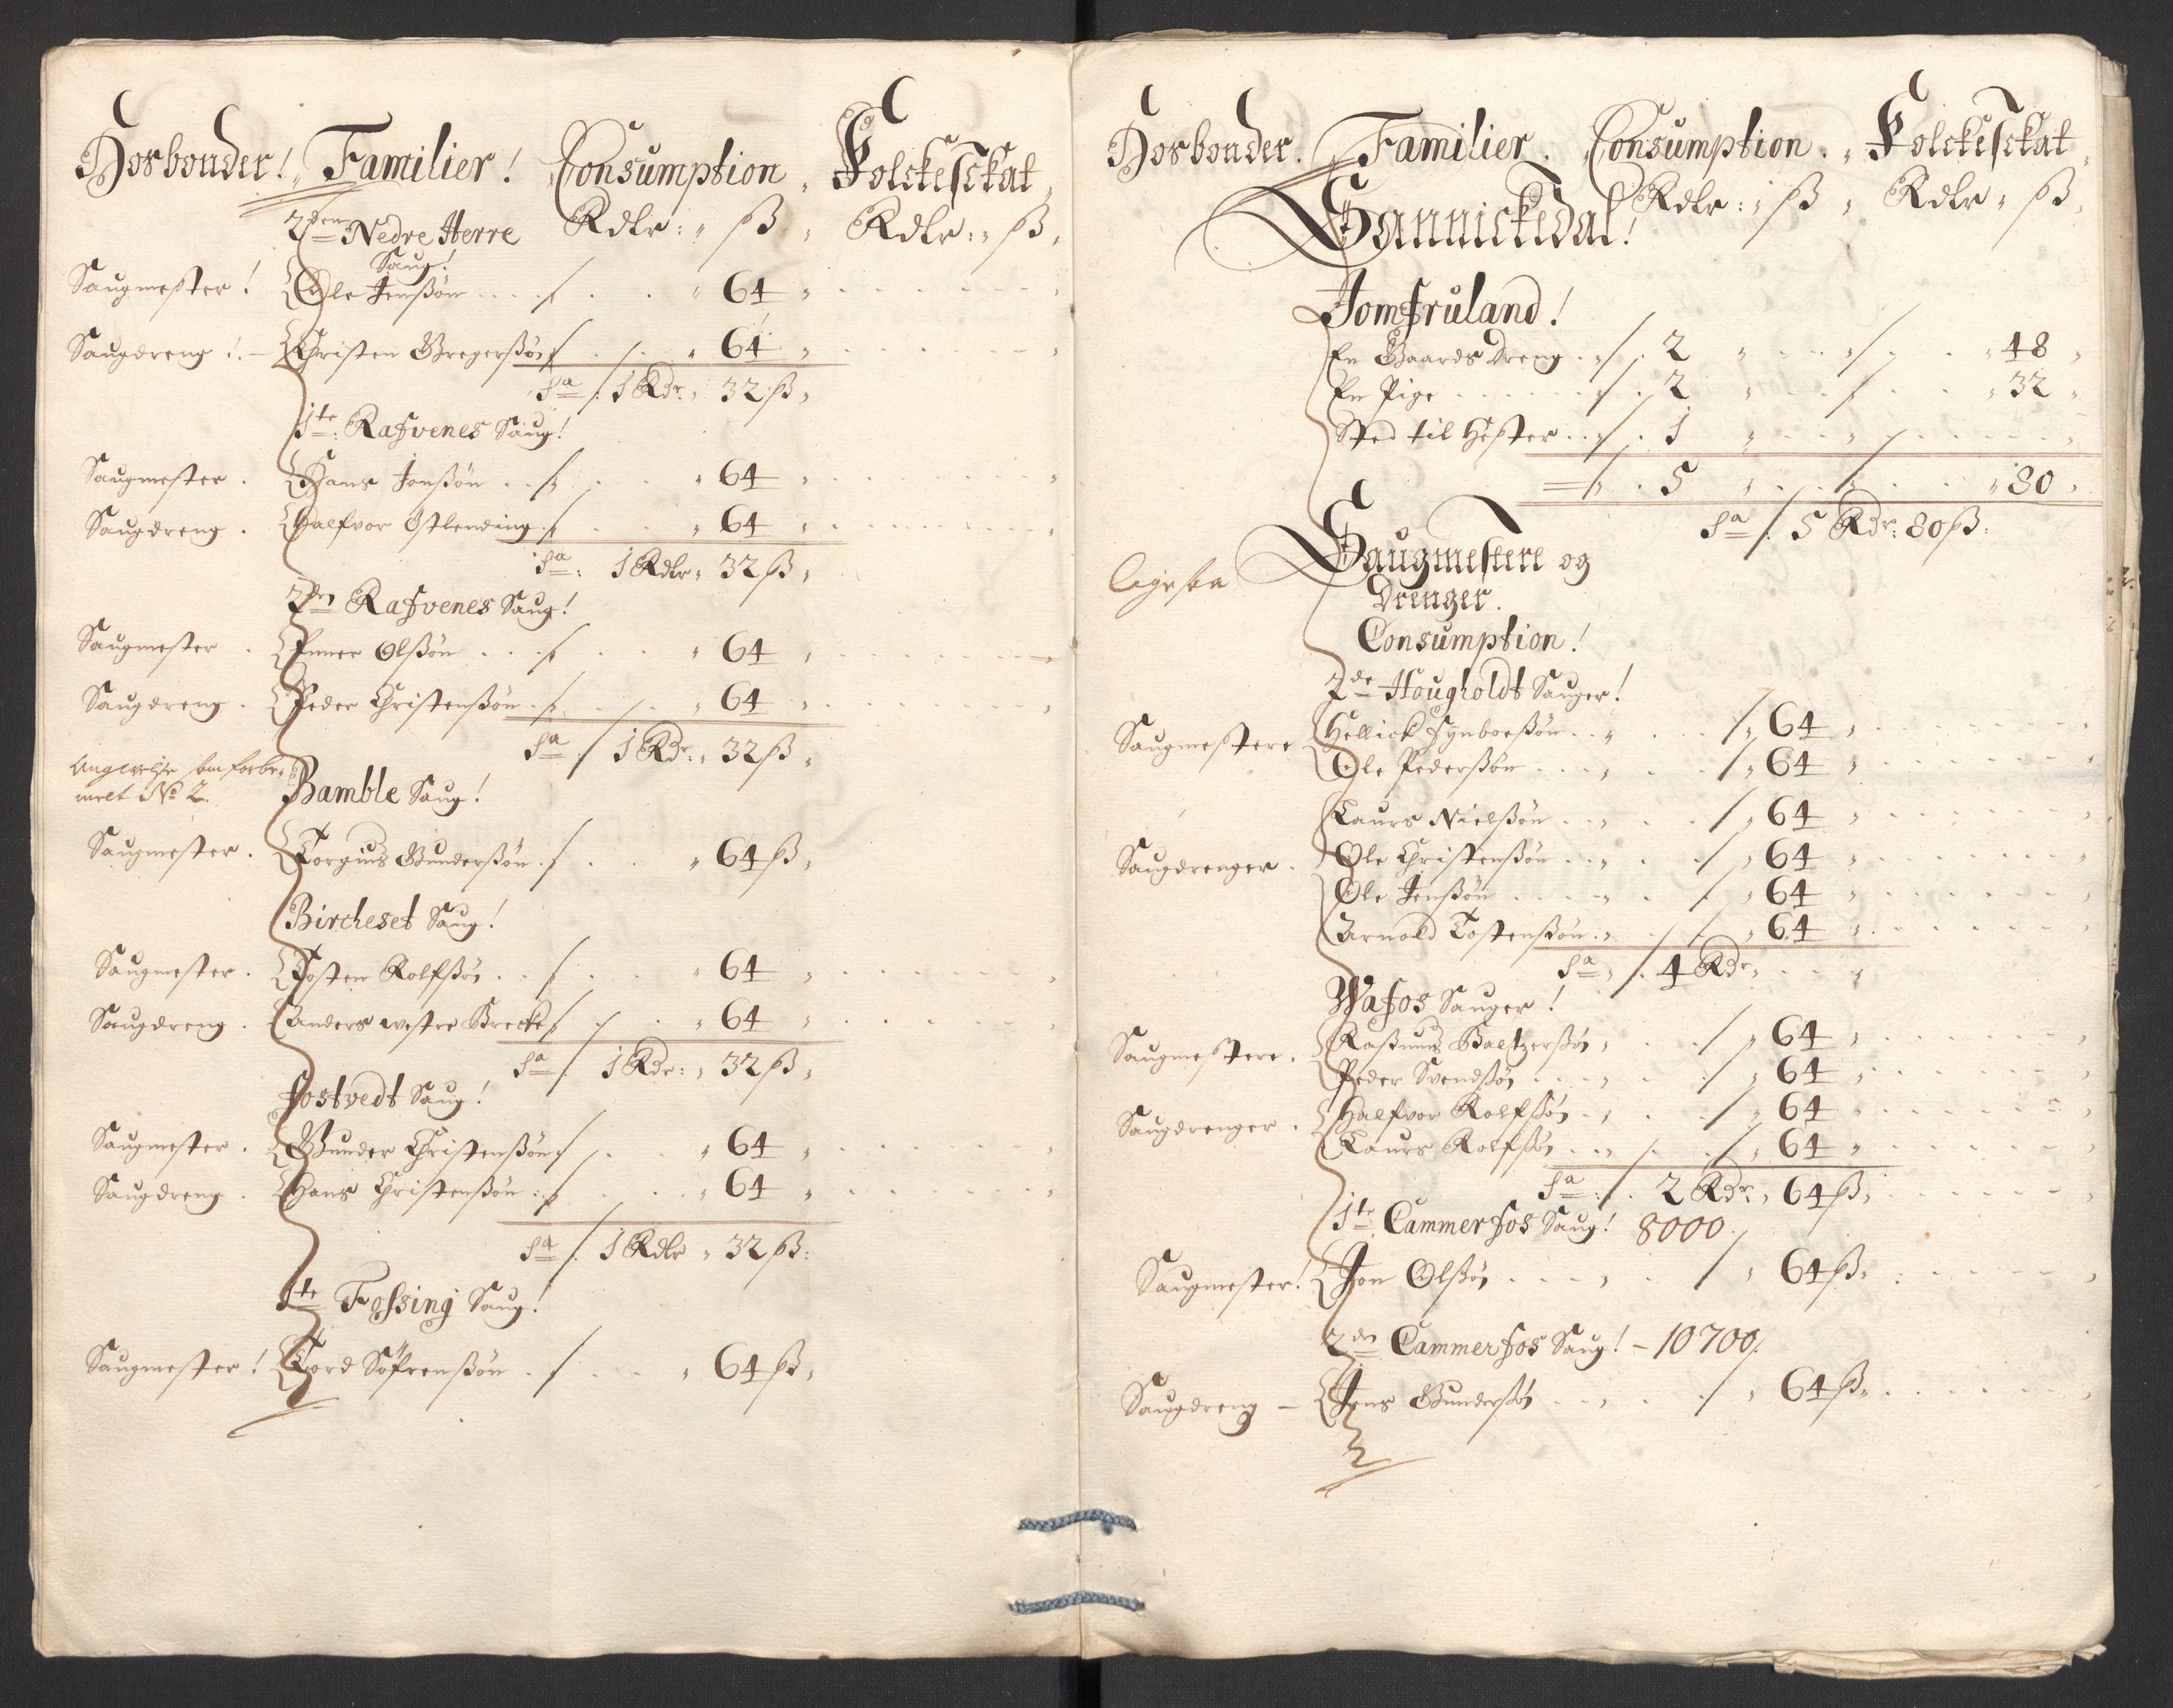 Hosbonder! Familier! Consumption, Folckeskat,
2den Nedre Herre Rdlr: ß, Rdlr: ß,
Saug!
Saugmester! Ole Jenßøn 64
Saugdreng! Christen Gregerßøn 64
Sa 1 Rdr: 32 ß,
1te Rafvenes Saug!
Saugmester. Hans Jonßøn 64
Saugdreng. Halfvor Østlending 64
Sa: 1 Rdlr: 32 ß,
2den Rafvenes Saug!
Saugmester Olßøn 64
Saugdreng. Peder Christenßøn 64
Sa 1 Rdr: 32 ß,
Angivelse som forbe-
melt No 2. Bamble Saug!
Saugmester. Torgius Gunderßøn 64 ß,
Bircheset Saug!
Saugmester. Tosten Rolfßøn 64
Saugdreng. Anders westre Brecke 64
Sa 1 Rdr: 32 ß,
Fostvedt Saug!
Saugmester. Gunder Christenßøn 64
Saugdreng. Hans Christenßøn 64
Sa 1 Rdlr 32 ß:
1te Fossing Saug!
Saugmester! Tord Søfrenßøn 64 ß,
Hosbonder. Familier. Consumption. Folckeskat,
Sannickedal! Rdlr: ß, Rdlr ß,
Jomfruland!
En Gaards Dreng 2 48
En Pige 2 32
Sted til Hester 1
5 80
Sa 5 Rdr: 80 ß.
Saugmestere og
Drenger.
Consumption!
2de Hougholdt Sauger!
Saugmestere Hellick Synboeßøn 64
Ole Pederßøn 64
Laurs Nielßøn 64
Saugdrenger. Ole Christenßøn 64
Ole Jenßøn 64
Arnold Tostenßøn 64
Sa 4 Rdr
Wafos Sauger!
Saugmestere. Raßmus Baltzerßøn 64
Peder Svendßøn 64
Saugdrenger. Halfvor Rolfßøn 64
Laurs Rolfßøn 64
Sa 2 Rdr, 64 ß,
1te Cammerfos Saug! 8000
Saugmester! Jon Olßøn 64 ß,
2den Cammerfos Saug! - 10700
Saugdreng - Jens Gunderßøn 64 ß,